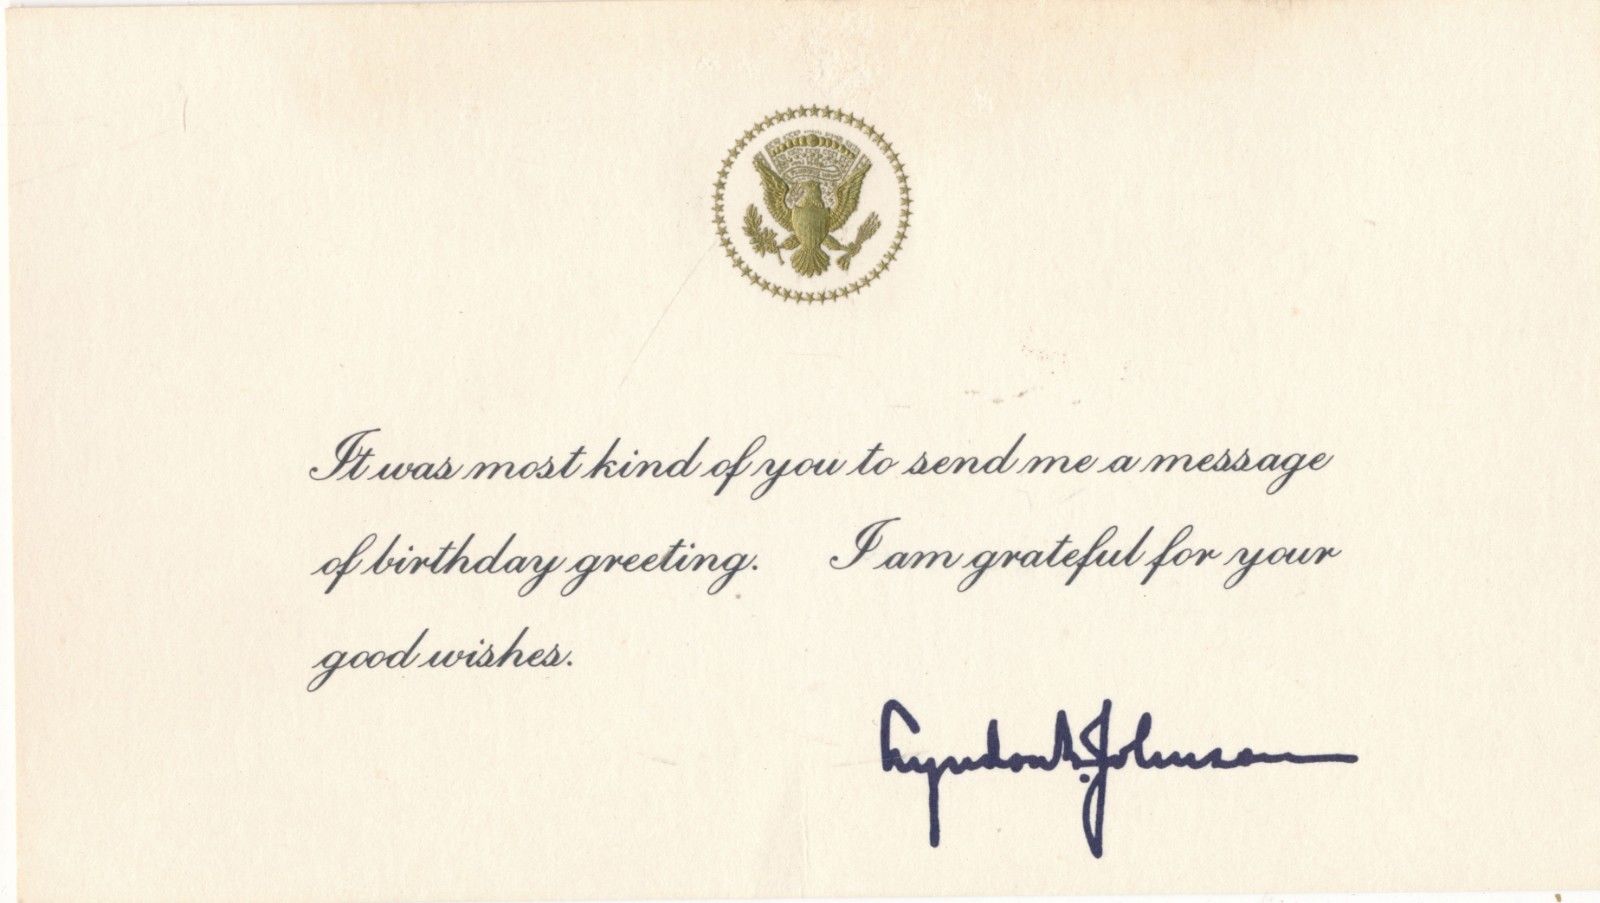 It was most kind of you to send me a message
of birthday greeting. I am grateful for your
good wishes.
Lyndon B. Johnson